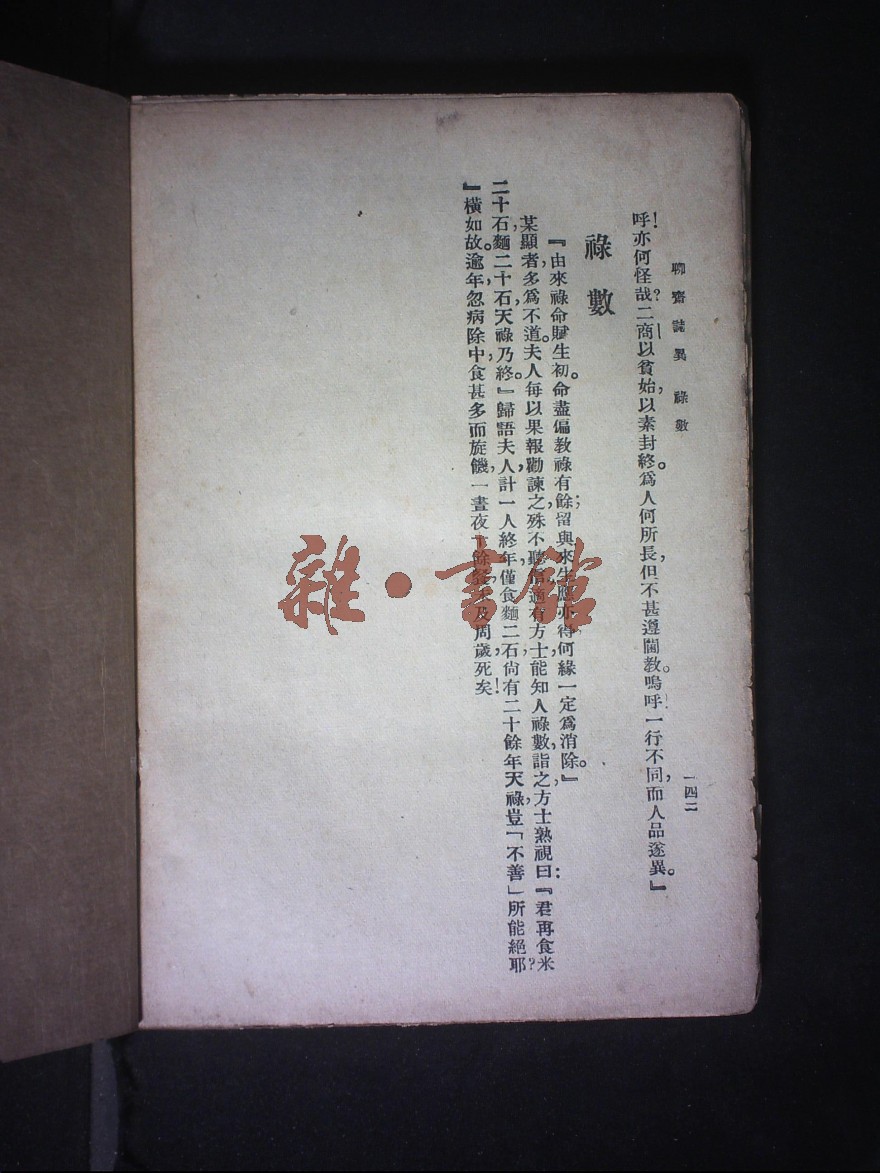 聊齋誌異 祿數
一四二
呼！亦何怪哉？二商以貧始，以素封終。爲人何所長，但不甚遵閫教。嗚呼！一行不同，而人品遂異。』
祿數
『由來祿命賦生初。命盡偏教祿有餘；留與來生應亦得，何緣一定爲消除。』
某顯者，多爲不道。夫人每以果報勸諫之，殊不聽信。適有方士，能知人祿數，詣之。方士熟視曰：『君再食米
二十石，麵二十石，天祿乃終。』歸語夫人，計一人終年僅食麵二石，尙有二十餘年天祿，豈「不善」所能絕耶？
』橫如故。逾年，忽病除中，食甚多而旋饑，一晝夜十餘餐。未及周歲，死矣！
雜·書館